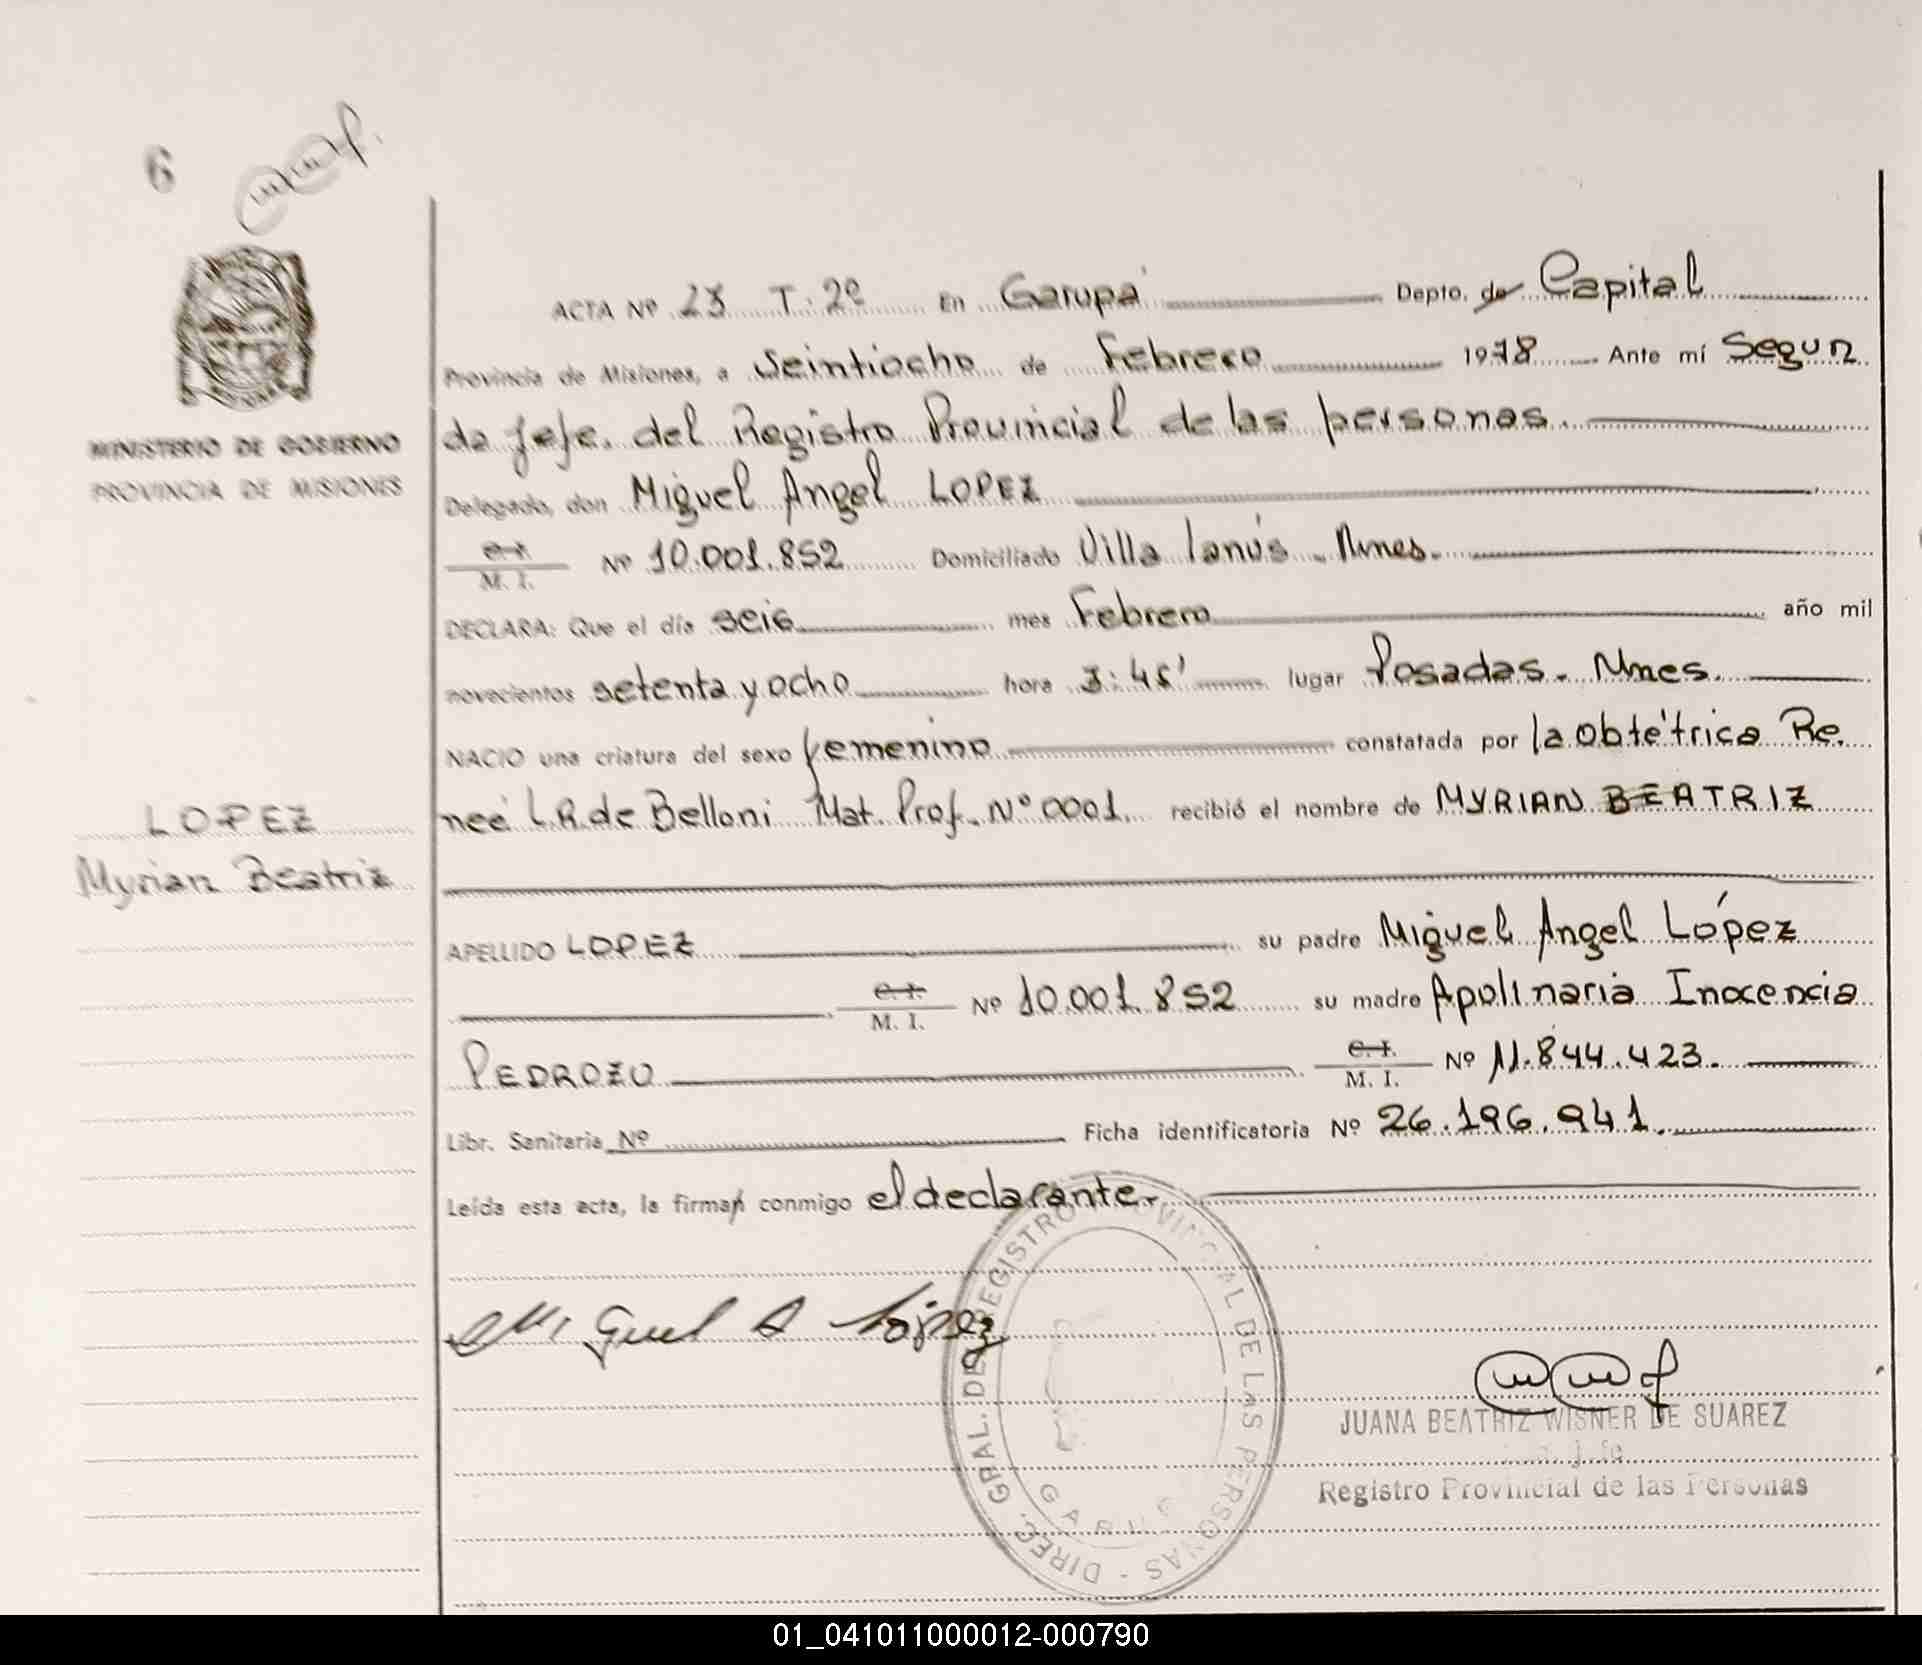 6
MINISTERIO DE GOBIERNO
PROVINCIA DE MISIONES
ACTA Nº 23 T: 2º En Garupá Depto. de Capital
Provincia de Misiones, a Veintiocho de Febrero 1978 Ante mí Segun
da Jefe. del Registro Provincial de las personas.
Delegado, don Miguel Angel LOPEZ
C. I.
M. I. Nº 10.001.852 Domiciliado Villa Lanús - Mnes.
DECLARA: Que el día seis mes Febrero año mil
novecientos setenta y ocho hora 3:45' lugar Posadas. Mnes.
NACIO una criatura del sexo femenino constatada por la Obtétrica Re.
neé L.R. de Belloni Mat. Prof. Nº 0001. recibió el nombre de MYRIAN BEATRIZ
LOPEZ
Myrian Beatriz
APELLIDO LOPEZ su padre Miguel Angel López
C. I.
M. I. Nº 10.001.852 su madre Apolinaria Inocencia
PEDROZO C. I.
M. I. Nº 11.844.423.
Libr. Sanitaria Nº Ficha identificatoria Nº 26.196.941.
Leída esta acta, la firman conmigo el declarante.
Miguel A López
DIREC. GRAL. DE REGISTRO PROVINCIAL DE LAS PERSONAS -
GARUPA
JUANA BEATRIZ WISNER DE SUAREZ
Registro Provincial de las Personas
01_041011000012-000790